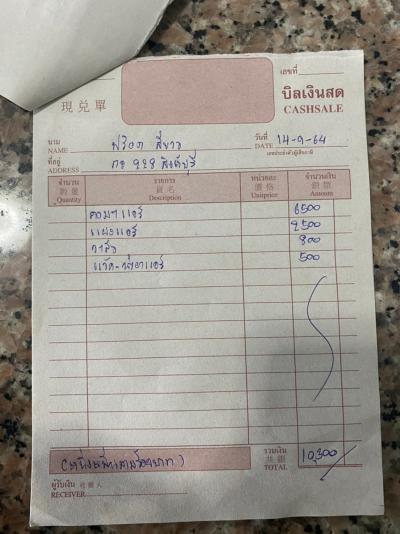 เลขที่
現兌單
บิลเงินสด
CASHSALE
นาม
NAME
วันที่ 14-9-64
DATE
เลขประจำตัวผู้เสียภาษี
ที่อยู่
ADDRESS สิงห์บุรี
จำนวน รายการ หน่วยละ จำนวนเงิน
數量 貨名 價格 銀額
Quantity Description Unitprice Amount
คอมฯแอร์ 6500
แผงแอร์ 2500
วาล์ว 800
500
รวมเงิน
共銀
TOTAL 10,300
(หนึ่งหมื่นสามร้อยบาท)
ผู้รับเงิน 收銀人
RECEIVER